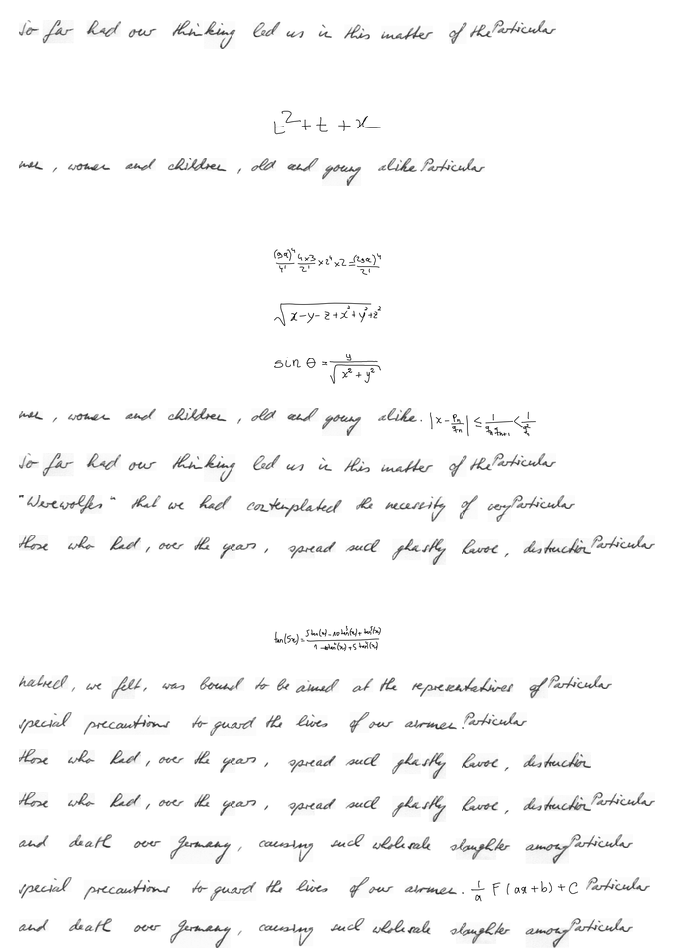 So far had our thinking led us in this matter of the Particular
t^2 + t + x
men, women and children, old and young alike Particular
\frac{(9x)^4}{4!} \frac{4 \times 3}{2!} \times 2^4 \times 2 = \frac{(29x)^4}{2!}
\sqrt{x-y-z+x^2+y^2+z^2}
sin θ = \frac{y}{\sqrt{x^2+y^2}}
men, women and children, old and young alike. |x - \frac{p_n}{q_n}| ≤ \frac{1}{q_n q_{n+1}} < \frac{1}{q_n^2}
So far had our thinking led us in this matter of the Particular
"Werewolfes" that we had contemplated the necessity of very Particular
those who had, over the years, spread such ghastly havoc, destruction Particular
tan(5x) = \frac{5 tan(x) - 10 tan^3(x) + tan^5(x)}{1 - 10 tan^2(x) + 5 tan^4(x)}
hatred, we felt, was bound to be aimed at the representatives of Particular
special precautions to guard the lives of our airmen. Particular
those who had, over the years, spread such ghastly havoc, destruction
those who had, over the years, spread such ghastly havoc, destruction Particular
and death over Germany, causing such wholesale slaughter among Particular
special precautions to guard the lives of our airmen. \frac{1}{a} F(ax+b) + C Particular
and death over Germany, causing such wholesale slaughter among Particular